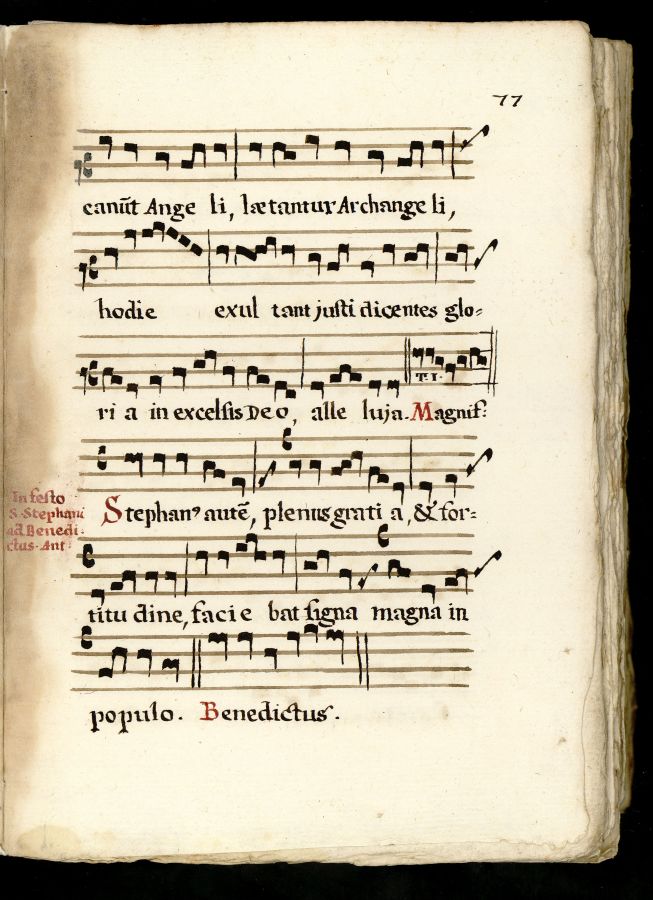 77
canūt Ange li, lætantur Archange li,
hodie exul tant justi dicentes glo=
T. I.
ri a in excelsis Deo, alle luja. Magnif:
In festo
S. Stephani
ad Benedi-
ctus. Ant:
Stephanꝰ autē, plenus grati a, & for=
titu dine, facie bat signa magna in
populo. Benedictus.